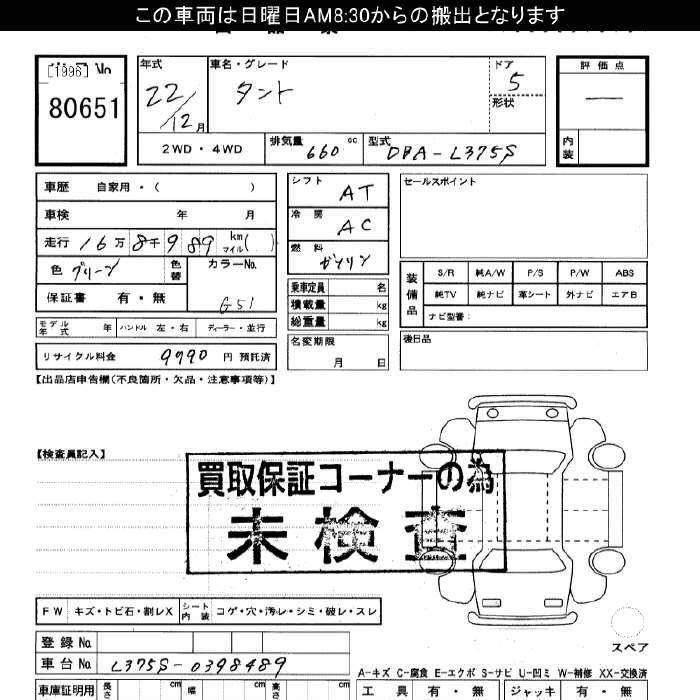 この車両は日曜日AM8:30からの搬出となります
[1996] No
80651
年式
22/12月
車名・グレード
タント
ドア
5
形状
評価点
—
内装
2WD・4WD
排気量 660 cc
型式 DBA-L375S
車歴 自家用・( )
車検 年 月
走行 16万8千989 km マイル( )
色 グリーン
色替
カラーNo.
G51
保証書 有・無
モデル年式 年
ハンドル 左・右
ディーラー・並行
リサイクル料金 9790 円 預託済
シフト AT
冷房 AC
燃料 ガソリン
乗車定員 名
積載量 kg
総重量 kg
名変期限
月 日
セールスポイント
装備品
S/R 純A/W P/S P/W ABS
純TV 純ナビ 革シート 外ナビ エアB
ナビ型番:
後日品
【出品店申告欄(不良箇所・欠品・注意事項等)】
【検査員記入】
買取保証コーナーの為
未検査
FW キズ・トビ石・割レX
シート内装 コゲ・穴・汚レ・シミ・破レ・スレ
スペア
登録 No.
車台 No. L375S-0398489
A-キズ C-腐食 E-エクボ S-サビ U-凹ミ W-補修 XX-交換済
車庫証明用 長さ cm 幅 cm 高さ cm
工具 有・無 ジャッキ 有・無